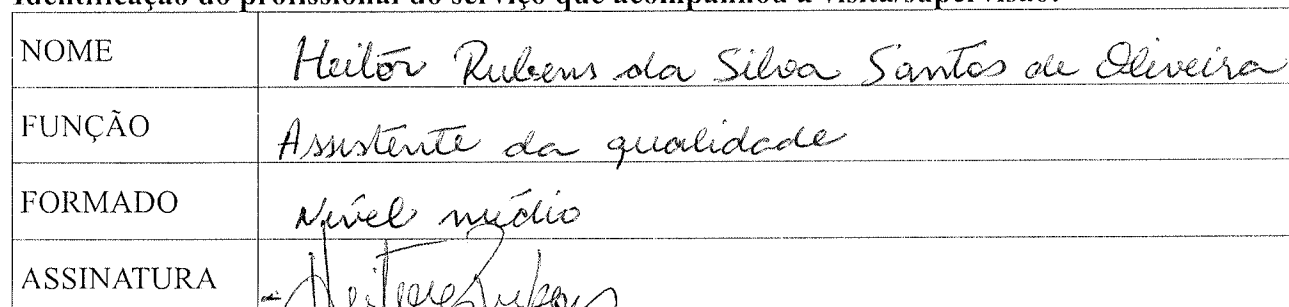 Identificação do profissional do serviço que acompanhou a visita/supervisão:
NOME Heitor Rubens da Silva Santos de Oliveira
FUNÇÃO Assistente da qualidade
FORMADO Nível médio
ASSINATURA